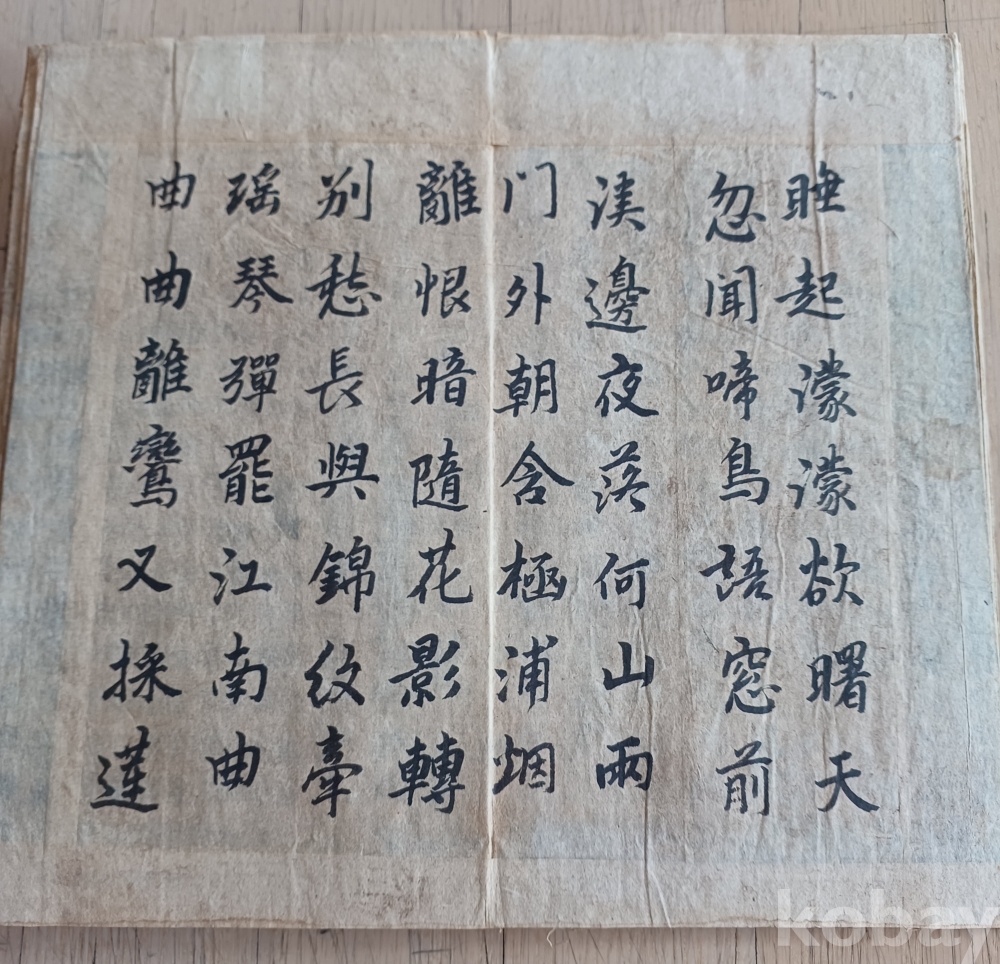 睡起濛濛欲曙天
忽聞啼鳥語窓前
渓邊夜落何山雨
门外朝含極浦烟
離恨暗隨花影轉
别愁長與錦紋牽
瑶琴彈罷江南曲
曲曲離鸞又採蓮
kobay